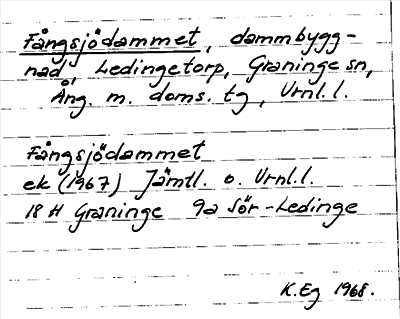 Fångsjödammet, dammbygg-
nad, Ledingetorp, Graninge sn,
Ång. m. doms. tg, Vrnl. l.
Fångsjödammet
ek (1967) Jämtl. o. Vrnl.l.
18 H Graninge 9a Sör-Ledinge
K.Eg 1968.